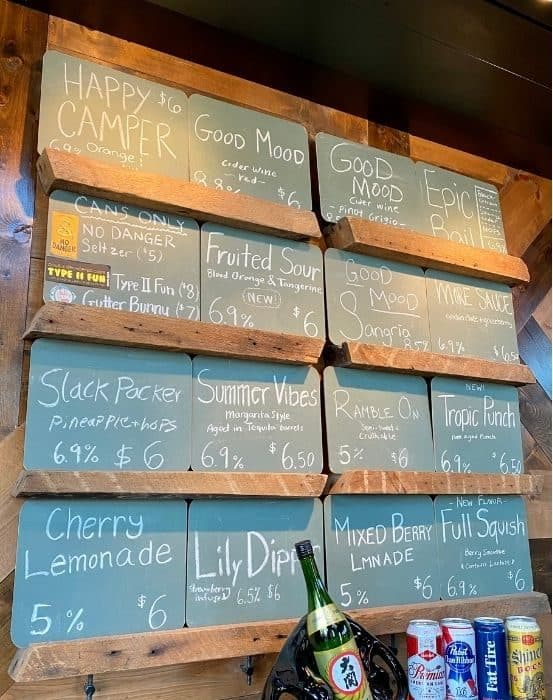 HAPPY $6
CAMPER
6.9% Orange
GOOD MOOD
Cider Wine
- red -
8.8% $6
GOOD
MOOD
Cider Wine
- Pinot Grigio -
Epic
Rail
CANS ONLY
NO DANGER
Seltzer ($5)
NO
DANGER
TYPE II FUN
Type II Fun ($8)
Gutter Bunny ($7)
Fruited Sour
Blood Orange & Tangerine
NEW!
6.9% $6
GOOD
MOOD
Sangria
8.5%
SAUCE
6.9% $6.50
Slack Packer
pineapple + hops
6.9% $6
Summer Vibes
Margarita Style
Aged in Tequila barrels
6.9% $6.50
RAMBLE ON
Semi-Sweet &
Crushable
5% $6
NEW!
Tropic Punch
rum aged Punch
6.9% $6.50
Cherry
Lemonade
5% $6
Lily Dipper
Strawberry
infused 6.5% $6
MIXED BERRY
LMNADE
5% $6
- NEW FLAVOR -
Full Squish
Berry Smoothie
* Contains Lactose *
6.9% $6
大関
Premium
Pabst
Blue Ribbon
Fat Tire
Shiner
BOCK